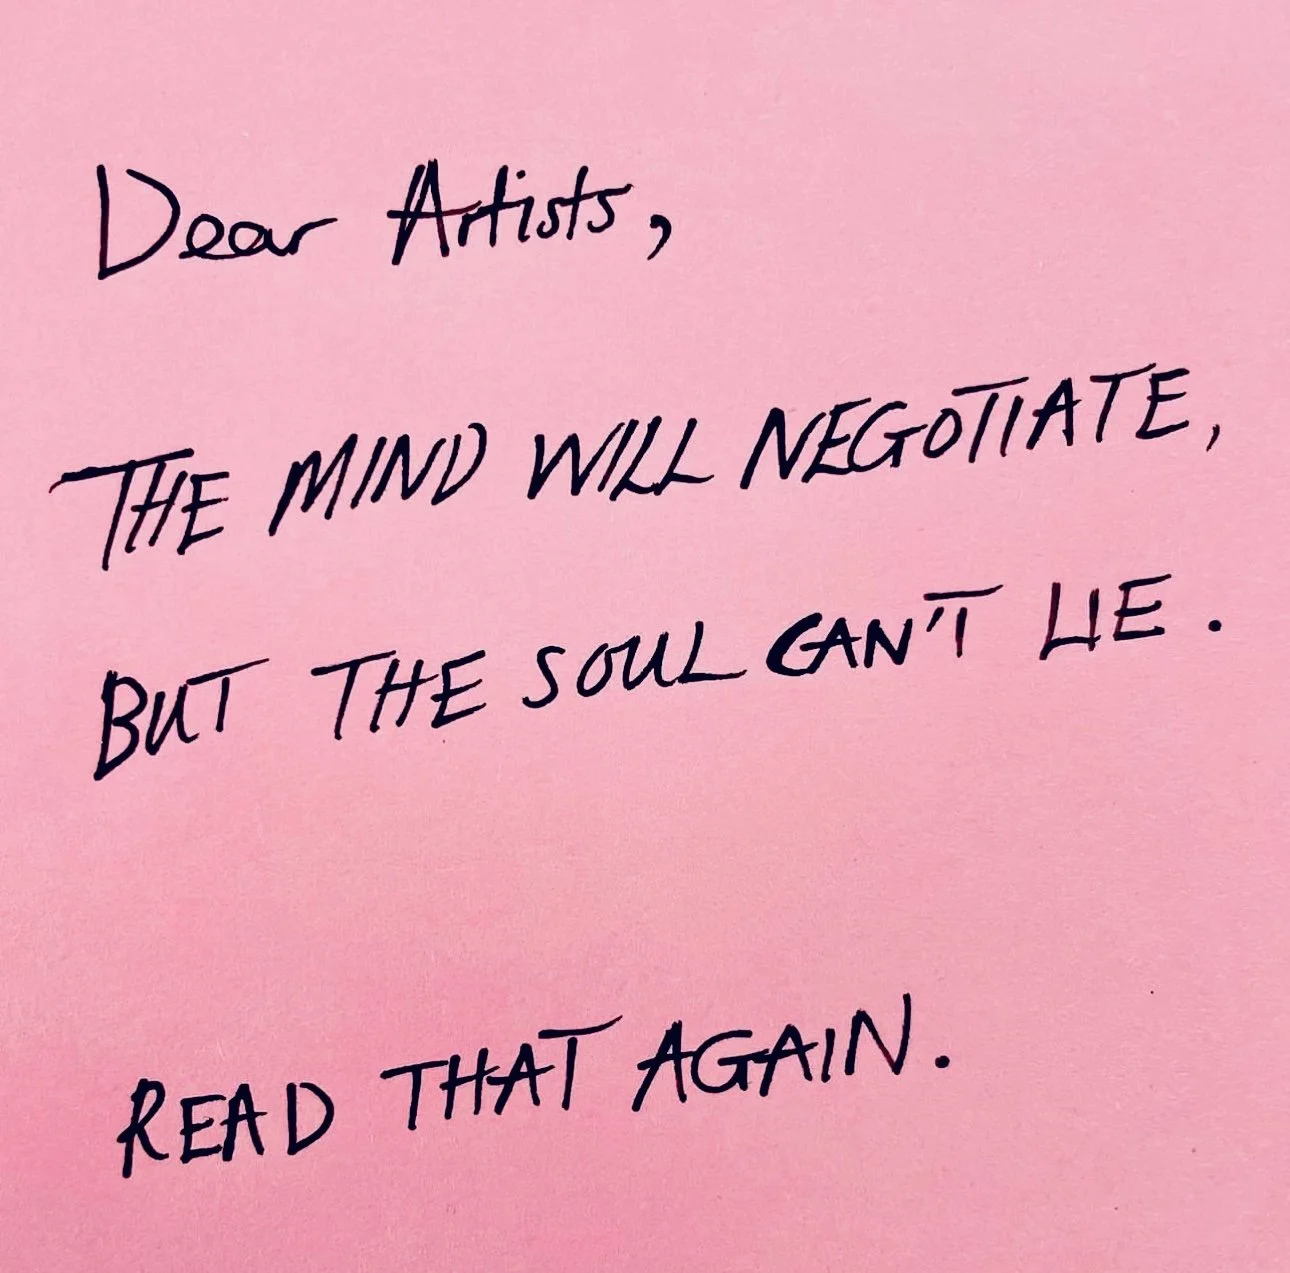 Dear Artists,
THE MIND WILL NEGOTIATE,
BUT THE SOUL CAN'T LIE.
READ THAT AGAIN.